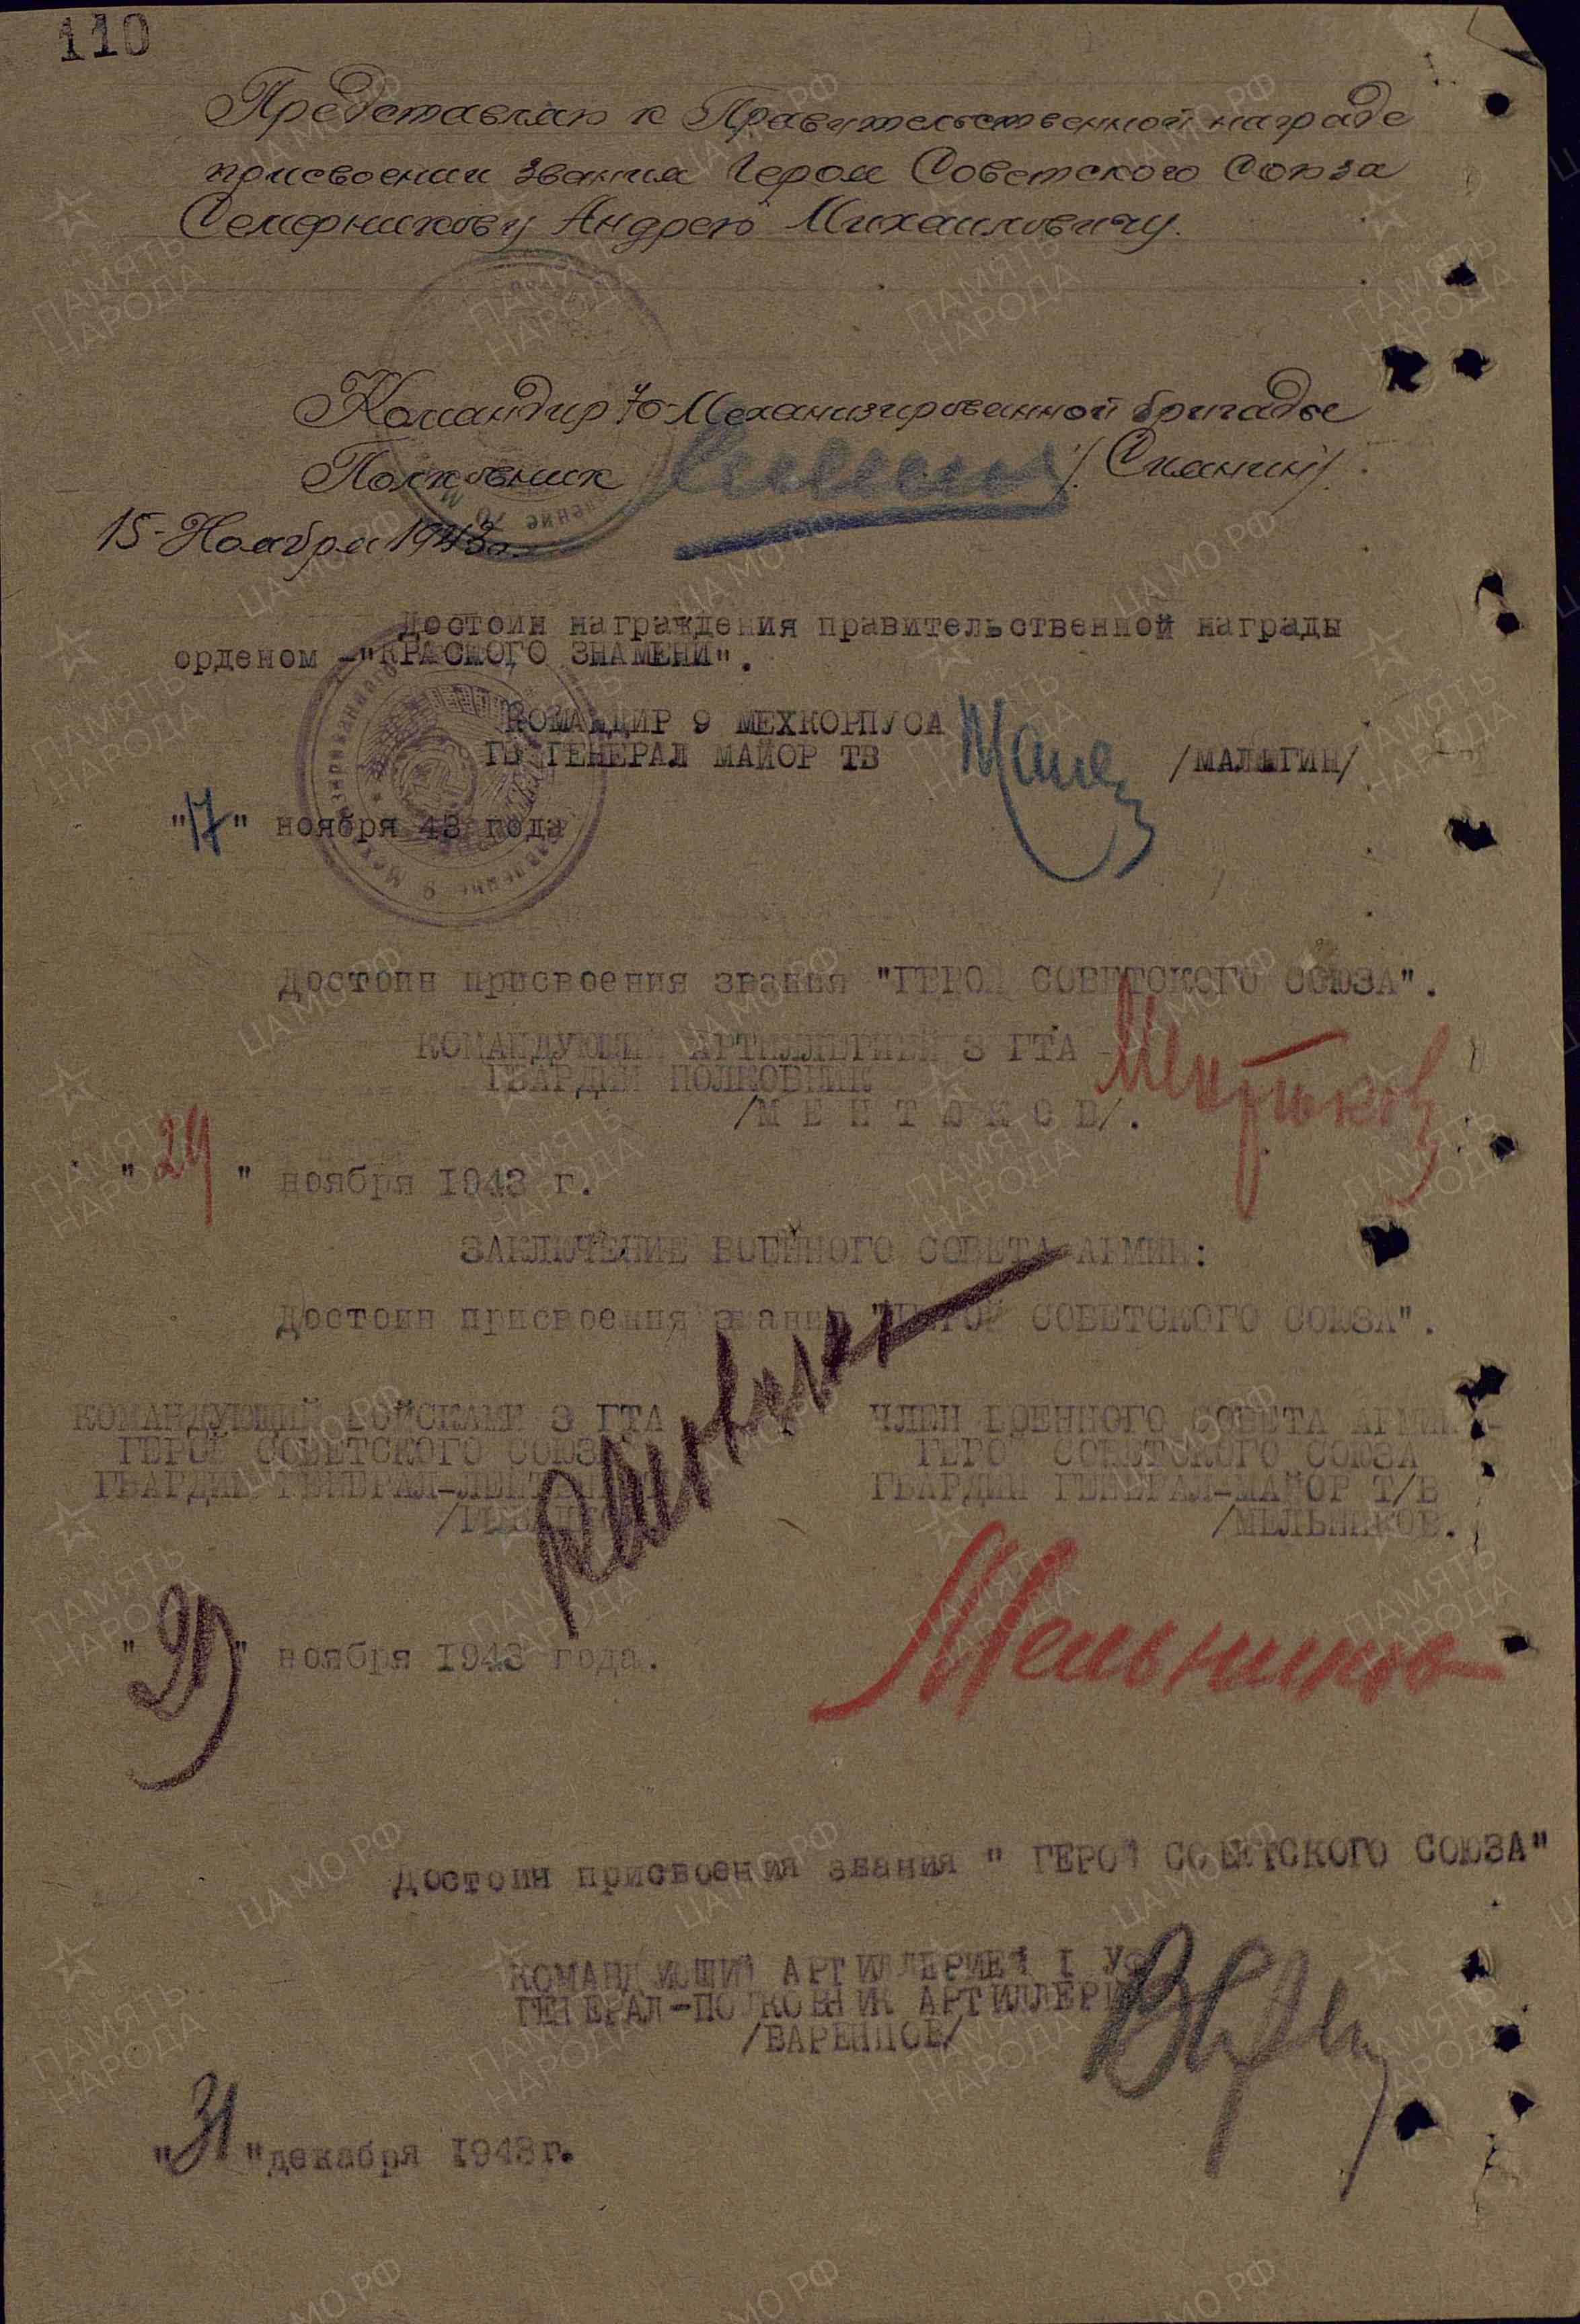 110
Представляю к Правительственной награде
присвоении звания Героя Советского Союза
Семерникову Андрею Михайловичу.
Командир 70-Механизированной бригады
Полковник /Сиянин/.
15-Ноября 1943г.
Достоин награждения правительственной награды
орденом -"КРАСНОГО ЗНАМЕНИ".
КОМАНДИР 9 МЕХКОРПУСА
ГВ ГЕНЕРАЛ МАЙОР ТВ /МАЛЫГИН/
"17" ноября 43 года
Достоин присвоения звания "ГЕРОЙ СОВЕТСКОГО СОЮЗА".
КОМАНДУЮЩИЙ АРТИЛЛЕРИЕЙ 3 ГТА -
ГВАРДИИ ПОЛКОВНИК
/М Е Н Т Ю К О В/.
"24" ноября 1943 г.
ЗАКЛЮЧЕНИЕ ВОЕННОГО СОВЕТА АРМИИ:
Достоин присвоения звания "ГЕРОЙ СОВЕТСКОГО СОЮЗА".
КОМАНДУЮЩИЙ ВОЙСКАМИ 3 ГТА ЧЛЕН ВОЕННОГО СОВЕТА АРМИИ-
ГЕРОЙ СОВЕТСКОГО СОЮЗА ГЕРОЙ СОВЕТСКОГО СОЮЗА
ГВАРДИИ ГЕНЕРАЛ-ЛЕЙТЕН ГВАРДИИ ГЕНЕРАЛ-МАЙОР Т/В
/МЕЛЬНИКОВ.
Мельников
" " ноября 1943 года.
Достоин присвоения звания " ГЕРОЙ СОВЕТСКОГО СОЮЗА"
КОМАНДУЮЩИЙ АРТИЛЛЕРИЕЙ I УФ
ГЕНЕРАЛ-ПОЛКОВНИК АРТИЛЛЕРИИ
/ВАРЕНЦОВ/
"31"декабря 1943г.